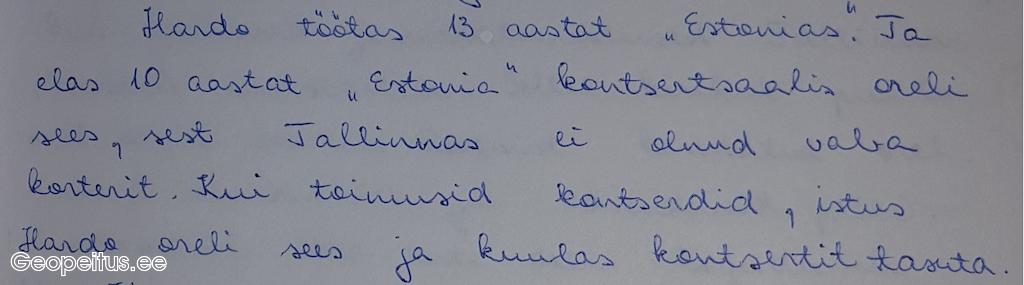 Hardo töötas 13 aastat „Estonias". Ta
elas 10 aastat „Estonia" kontsertsaalis oreli
sees, sest Tallinnas ei olnud vaba
korterit. Kui toimusid kontserdid, istus
Hardo oreli sees ja kuulas kontsertit tasuta.
Geopeitus.ee